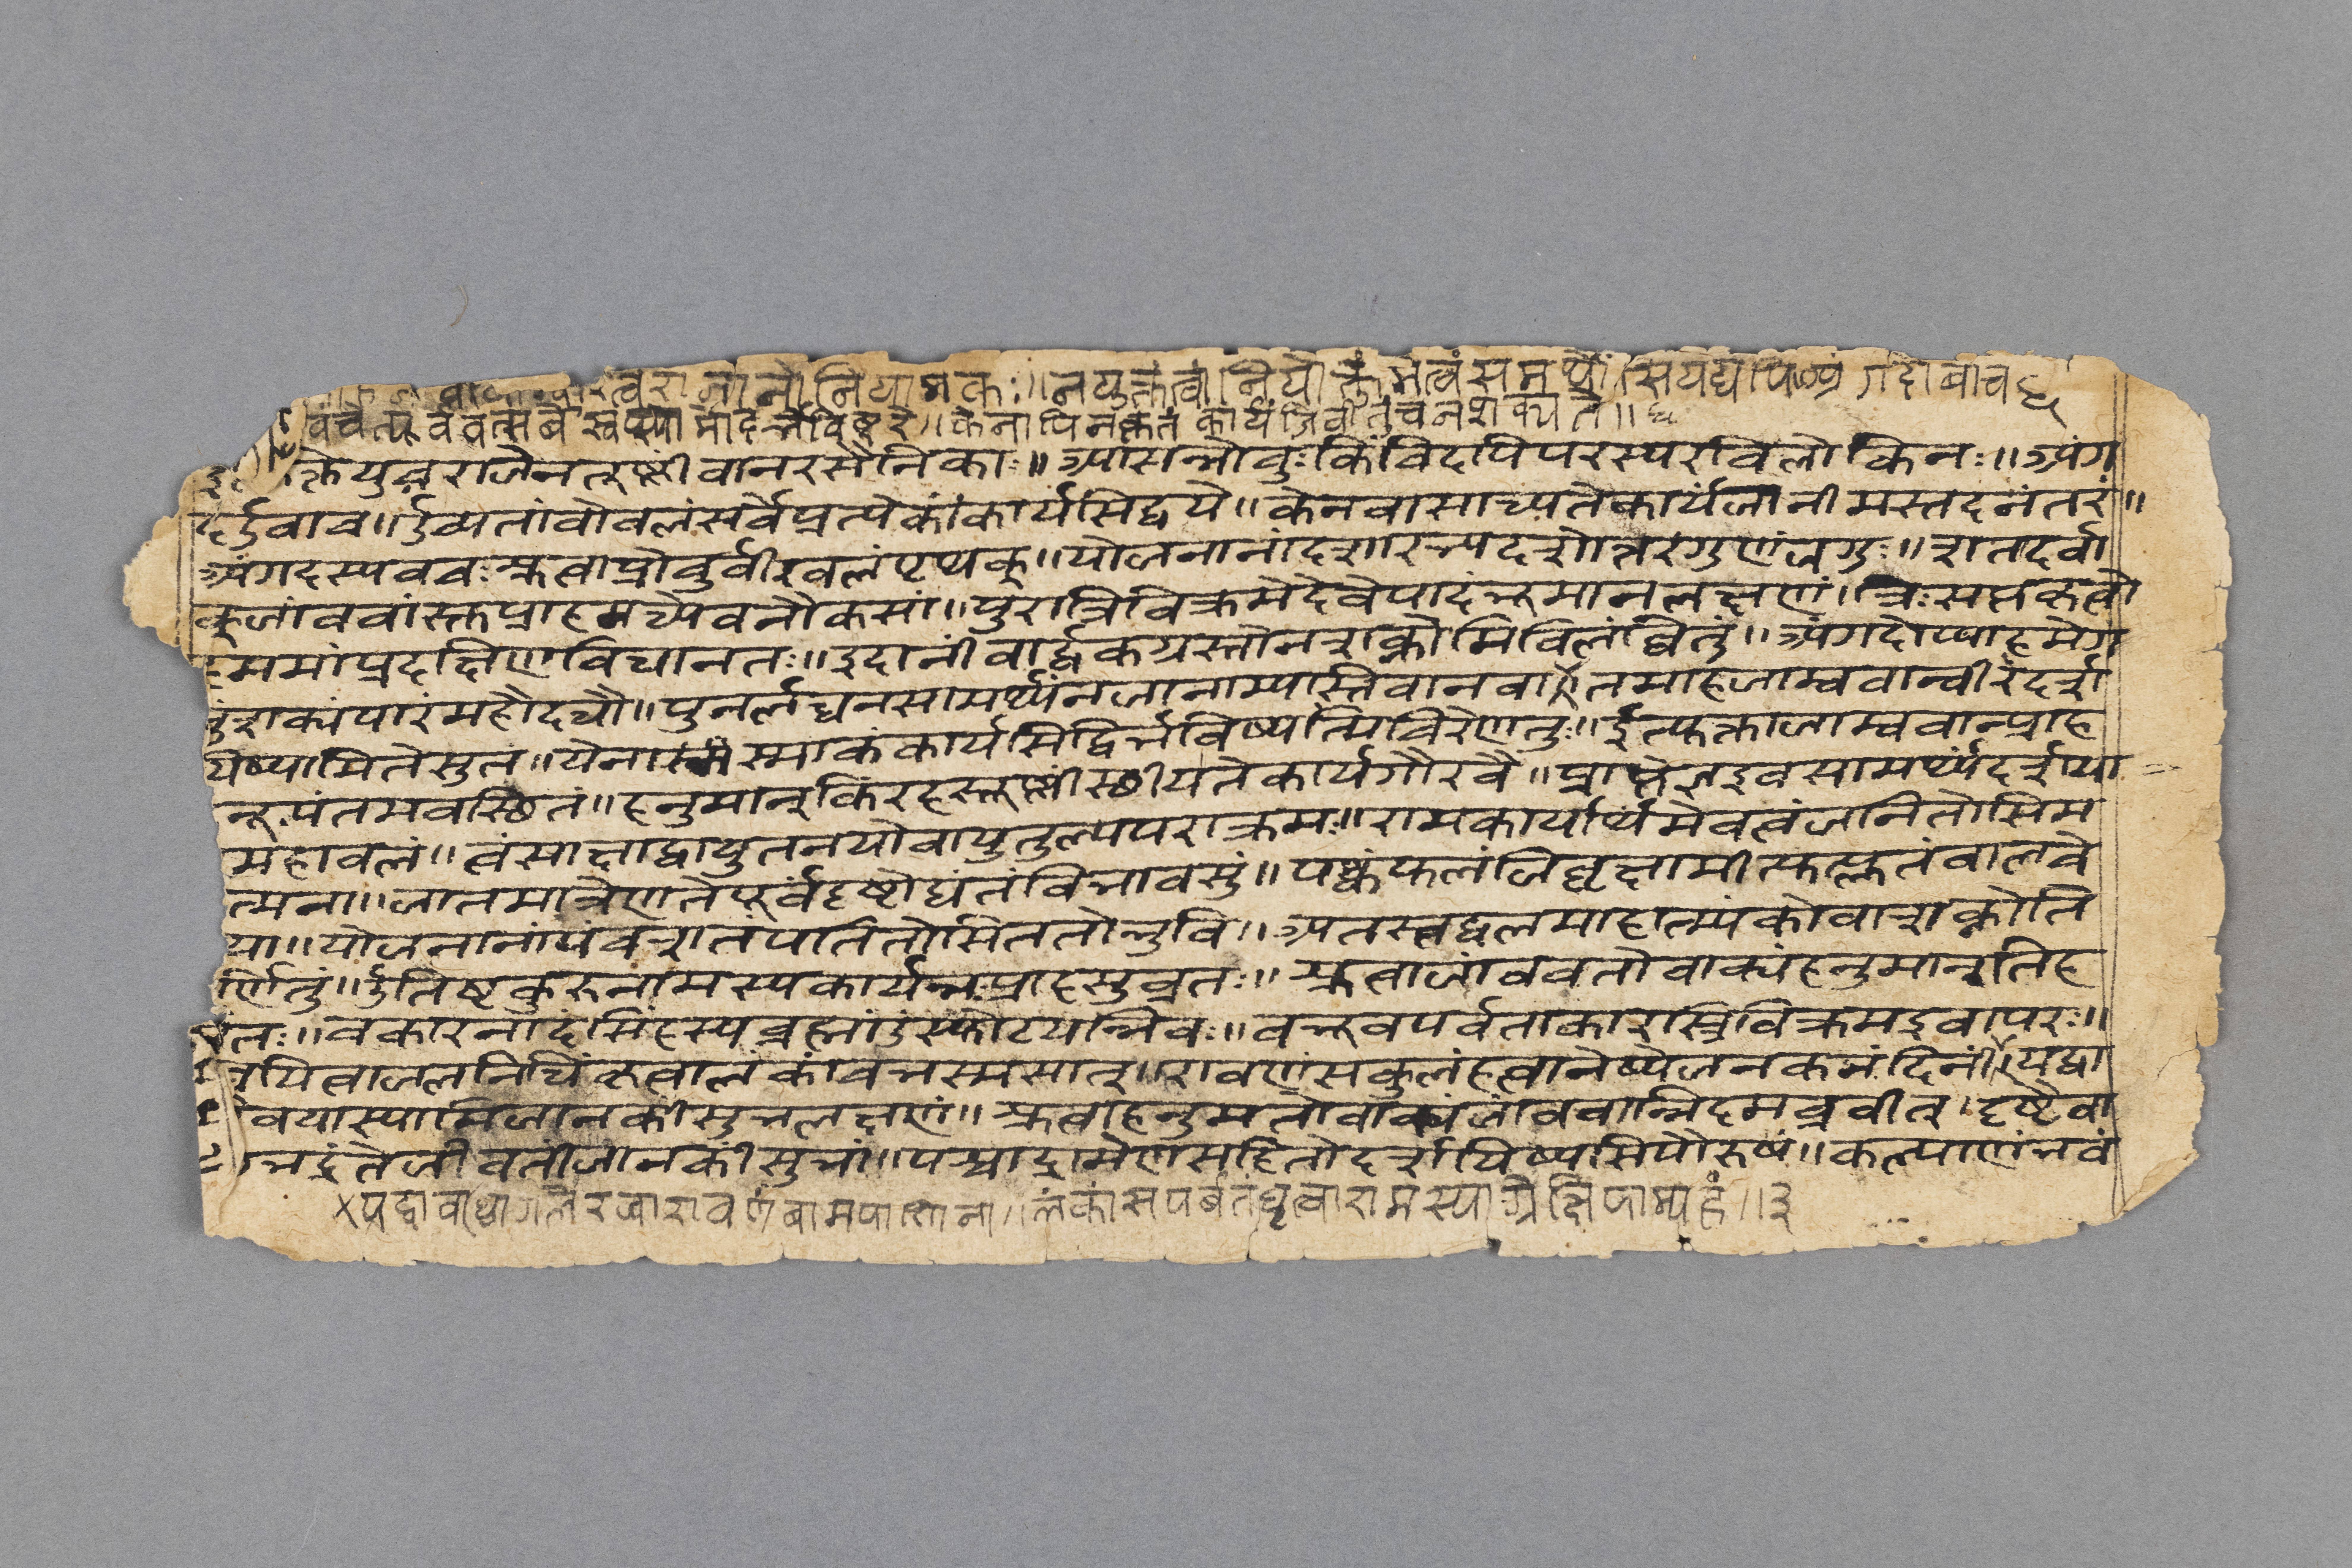 त्वं राजा नो नियामकः॥ न युक्तं त्वां नियोक्तुं मे त्वं समर्थोसि यद्यपि अंगदोवाच
वं चेत्पूर्ववत्सर्बे स्वप्स्यामो दर्भविष्टरे॥ केनापि न कृतं कार्यं जीवीतुं च न शक्यते॥
क्ते युवराजेन तूष्णीं वानरसैनिकाः॥ आसन्नोचुः किंचिदपि परस्परविलोकिनः॥ अंग
द उवाच॥ उच्यतां वो बलं सर्वे प्रत्येकं कार्यसिद्धये॥ केन वा साध्यते कार्यं जानीमस्तदनंतरं॥
अंगदस्य वचः श्रुत्वा प्रोचुर्वीर बलं पृथक्॥ योजनानां दशारभ्य दशोत्तरगुणं जगुः॥ शतदर्वा
क् जांबवांस्तु प्राह मध्ये वनौकसां॥ पुरा त्रिविक्रमे देवे पादं भूमानलक्षणं। त्रिःसप्तकृत्वो
मगां प्रदक्षिणविधानतः॥ इदानीं वार्द्धकग्रस्तो न शक्नोमि विलंघितुं॥ अंगदोप्याह मे ग
तुं शक्यं पारं महोदधौ॥ पुनर्लंघनसामर्थ्यं न जानाम्यस्ति वा न वा॥ तमाह जाम्बवान्वीरं दर्श
यिष्यामि ते सुत॥ येनास्माकं कार्यसिद्धिर्भविष्यत्यचिरेण तु॥ इत्युक्त्वा जाम्बवान्प्राह
नूपंतमवस्थितं॥ हनुमान् किं रहस्तूष्णीं स्थीयते कार्यगौरवे॥ प्राप्तेज्ञ इव सामर्थ्यं दर्शया
महाबलं॥ त्वं साक्षाद्वायुतनयो वायुतुल्यपराक्रमः॥ रामकार्यार्थमेव त्वं जनितोसि म
त्मना॥ जातमात्रेण ते पूर्वं दृष्टोद्यंतं विभावसुं॥ पक्वं फलं जिघृक्षामीत्युत्प्लुतं बालचे
या॥ योजनानां पंचशतं पतितोसि ततो भुवि॥ अतस्त्वद्बलमाहात्म्यं को वा शक्नोति
र्णितुं॥ उत्तिष्ठ कुरु रामस्य कार्यं नः प्राह सुव्रत॥ श्रुत्वा जांबवतो वाक्यं हनुमानतिह
तः॥ चकार नादं सिंहस्य ब्रह्मांडं स्फोटयन्निव॥ बभूव पर्वताकारस्त्रिविक्रम इवापरः॥
घयित्वा जलनिधिं कृत्वा लंकां च भस्मसात्॥ रावणं सकुलं हत्वा नेष्ये जनकनंदिनीं॥ यद्वा
वयास्यामि जानकीं सुभलक्षणं॥ श्रुत्वा हनुमतो वाक्यं जांबवान्निदमब्रवीत्। दृष्टैवा
भद्रं ते जीवतीं जानकीं सुभां॥ पश्चाद्रामेण सहितो दर्शयिष्यसि पौरुषं॥ कल्याणं भवं
×यद्वा बध्वा गले रज्वा रावणं बामपाणिना॥ लंकां सपर्बतं धृत्वा रामस्याग्रे क्षिपाम्यहं॥३